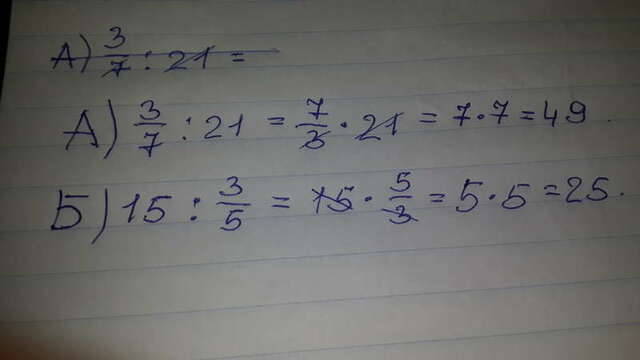 А) 3/7 : 21 =
А) 3/7 : 21 = 7/3 · 21 = 7·7 = 49.
Б) 15 : 3/5 = 15 · 5/3 = 5·5 = 25.